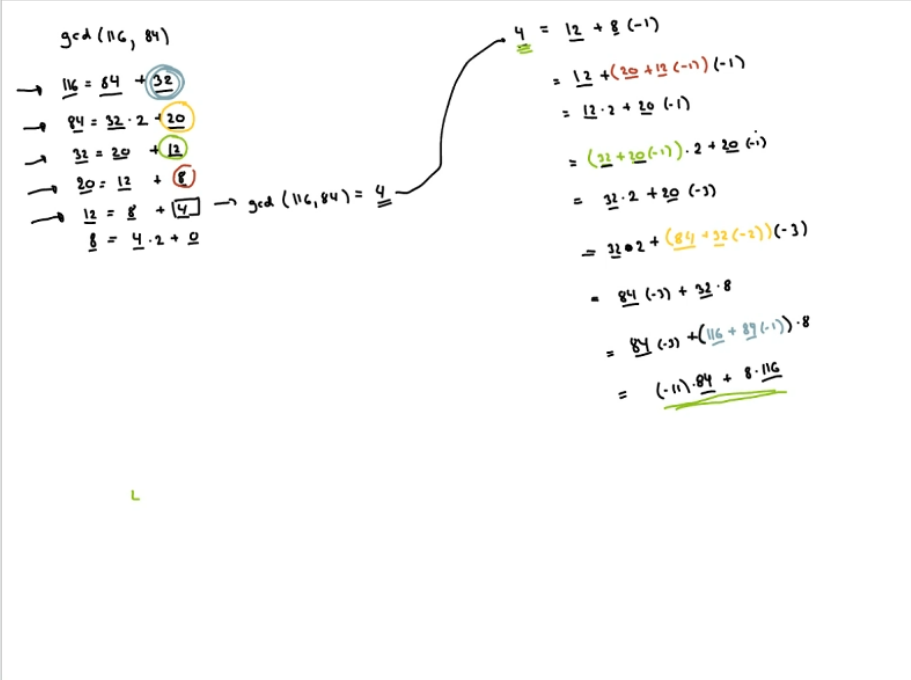 gcd (116, 84)
→ 116 = 84 + 32
→ 84 = 32 · 2 + 20
→ 32 = 20 + 12
→ 20 = 12 + 8
→ 12 = 8 + 4 → gcd (116, 84) = 4
8 = 4 · 2 + 0
4 = 12 + 8 (-1)
= 12 + (20 + 12 (-1)) (-1)
= 12 · 2 + 20 (-1)
= (32 + 20 (-1)) · 2 + 20 (-1)
= 32 · 2 + 20 (-3)
= 32 · 2 + (84 + 32 (-2)) (-3)
= 84 (-3) + 32 · 8
= 84 (-3) + (116 + 84 (-1)) · 8
= (-11) · 84 + 8 · 116
L